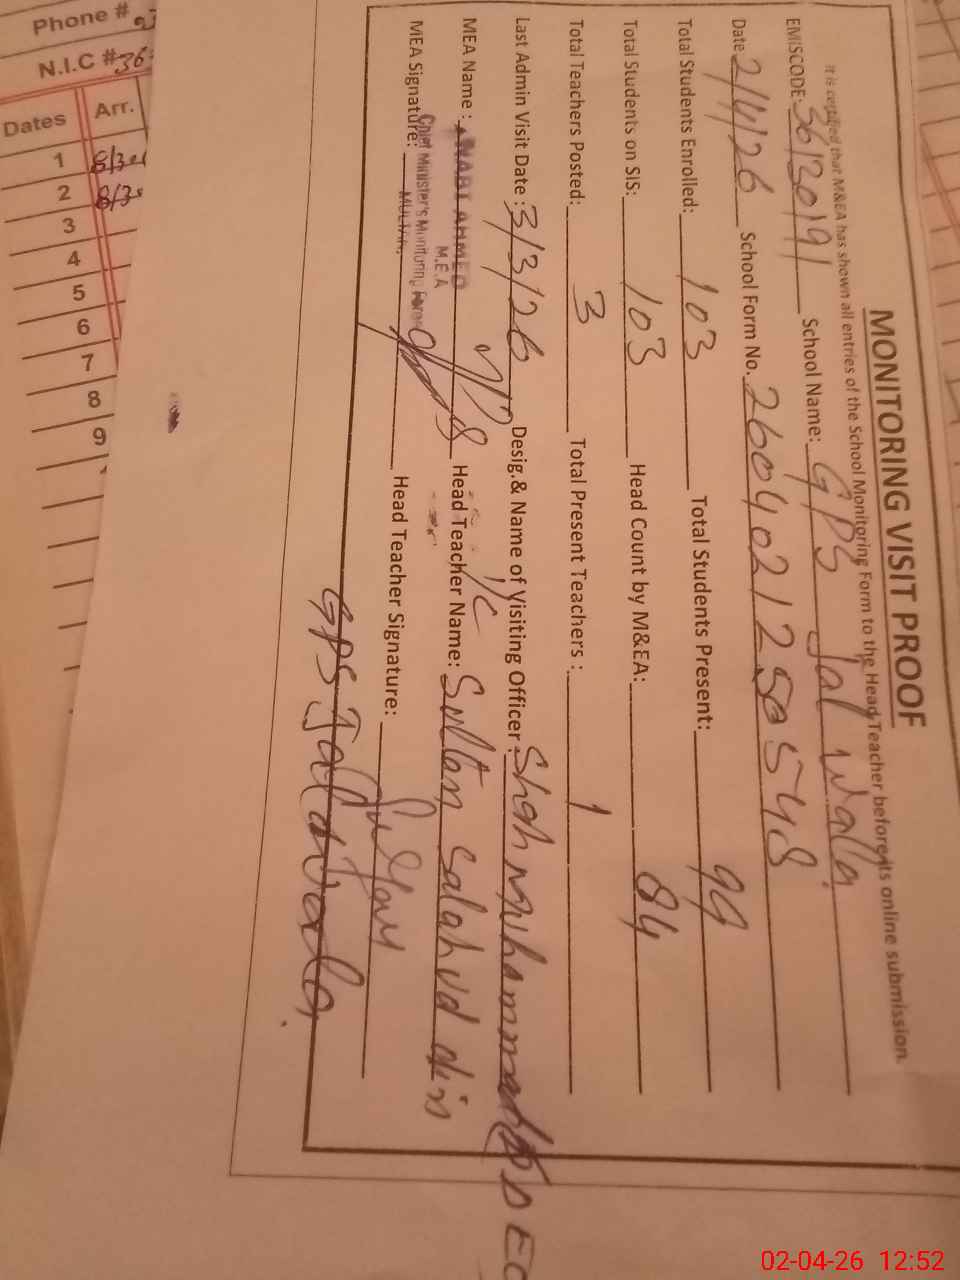 MONITORING VISIT PROOF
It is certified that M&EA has shown all entries of the School Monitoring Form to the Head Teacher before its online submission.
EMISCODE: 36130191 School Name: GPS Jal walla
Date: 2/4/26 School Form No. 260402125 548
Total Students Enrolled: 103 Total Students Present: 99
Total Students on SIS: 103 Head Count by M&EA: 84
Total Teachers Posted: 3 Total Present Teachers: 1
Last Admin Visit Date: 3/3/26 Desig.& Name of Visiting Officer: Shah Muhammad
MEA Name: AHMED Head Teacher Name: Sultan salah ud din
M.E.A
MEA Signature: Head Teacher Signature:
Chief Minister's Monitoring Force
MULTAN
GPS Jal walla
Phone #
N.I.C # 36
Dates Arr.
1
2
3
4
5
6
7
8
9
02-04-26 12:52